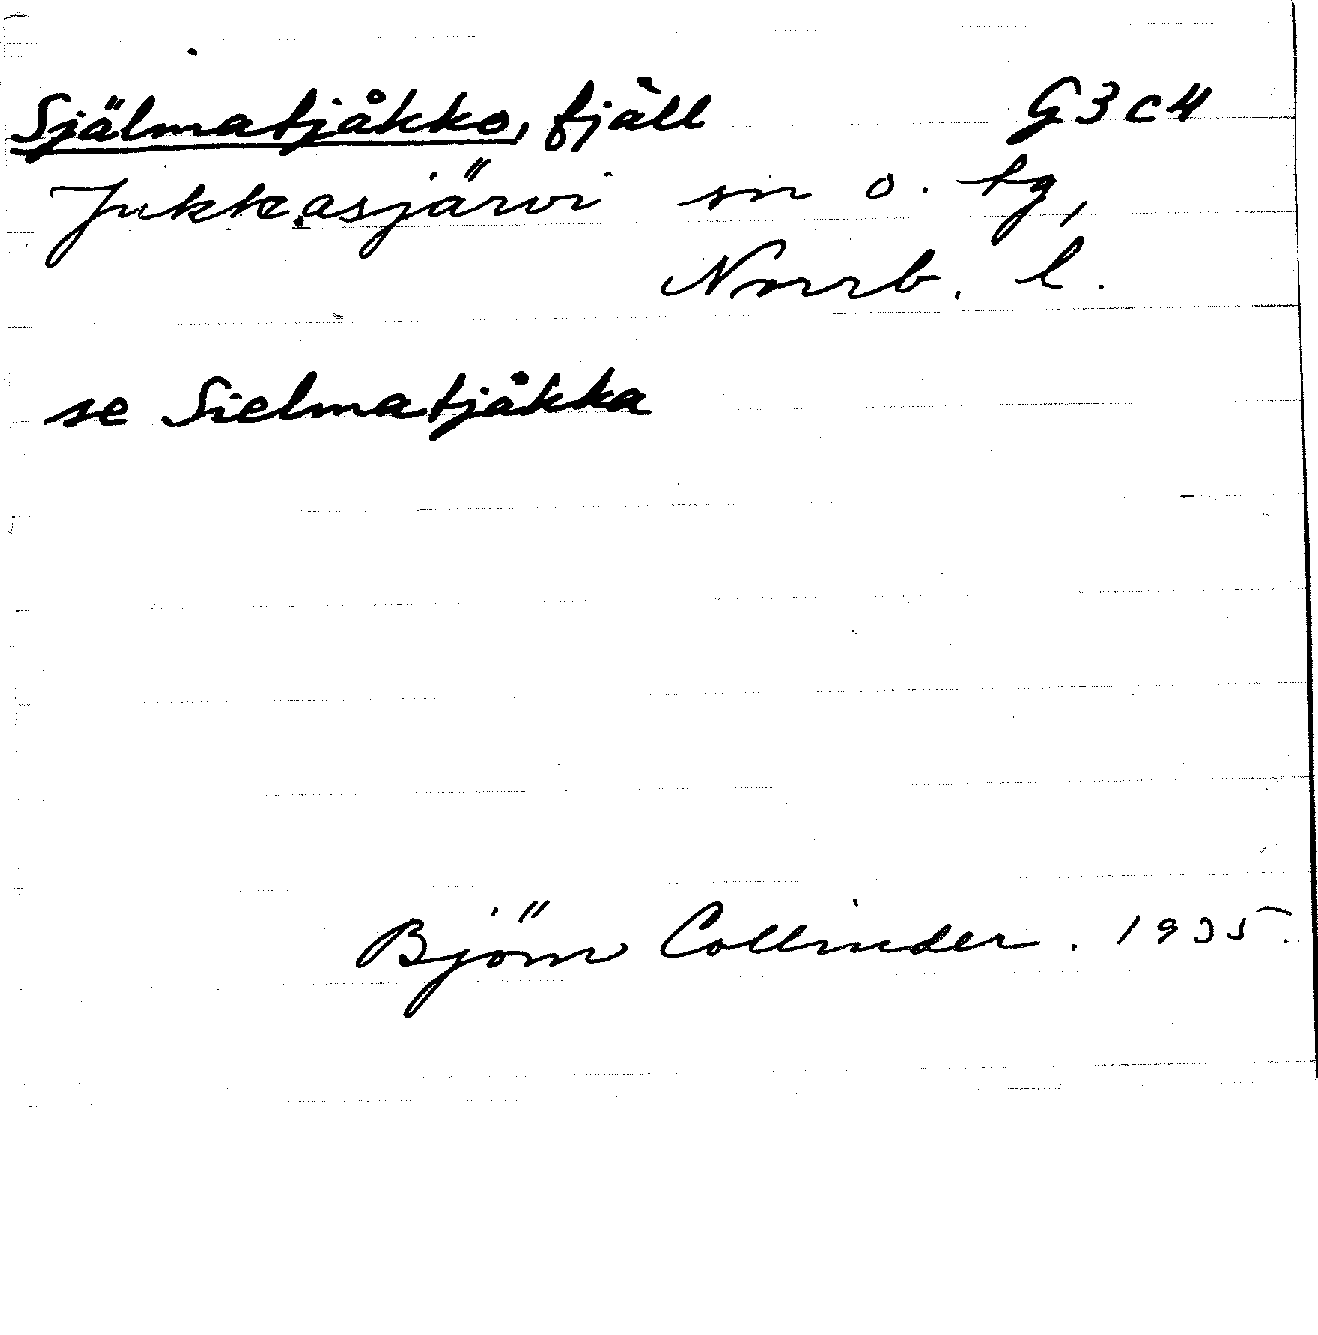 Själmatjåkko, fjäll G3c4
Jukkasjärvi sn o. tg,
Norrb. l.
se Sielmatjåkka
Björn Collinder. 1935.